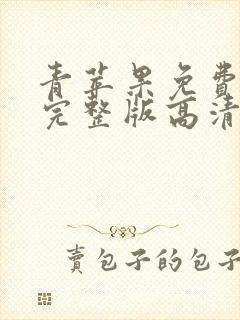 青苹果免費
完整版高清
賣包子的包子